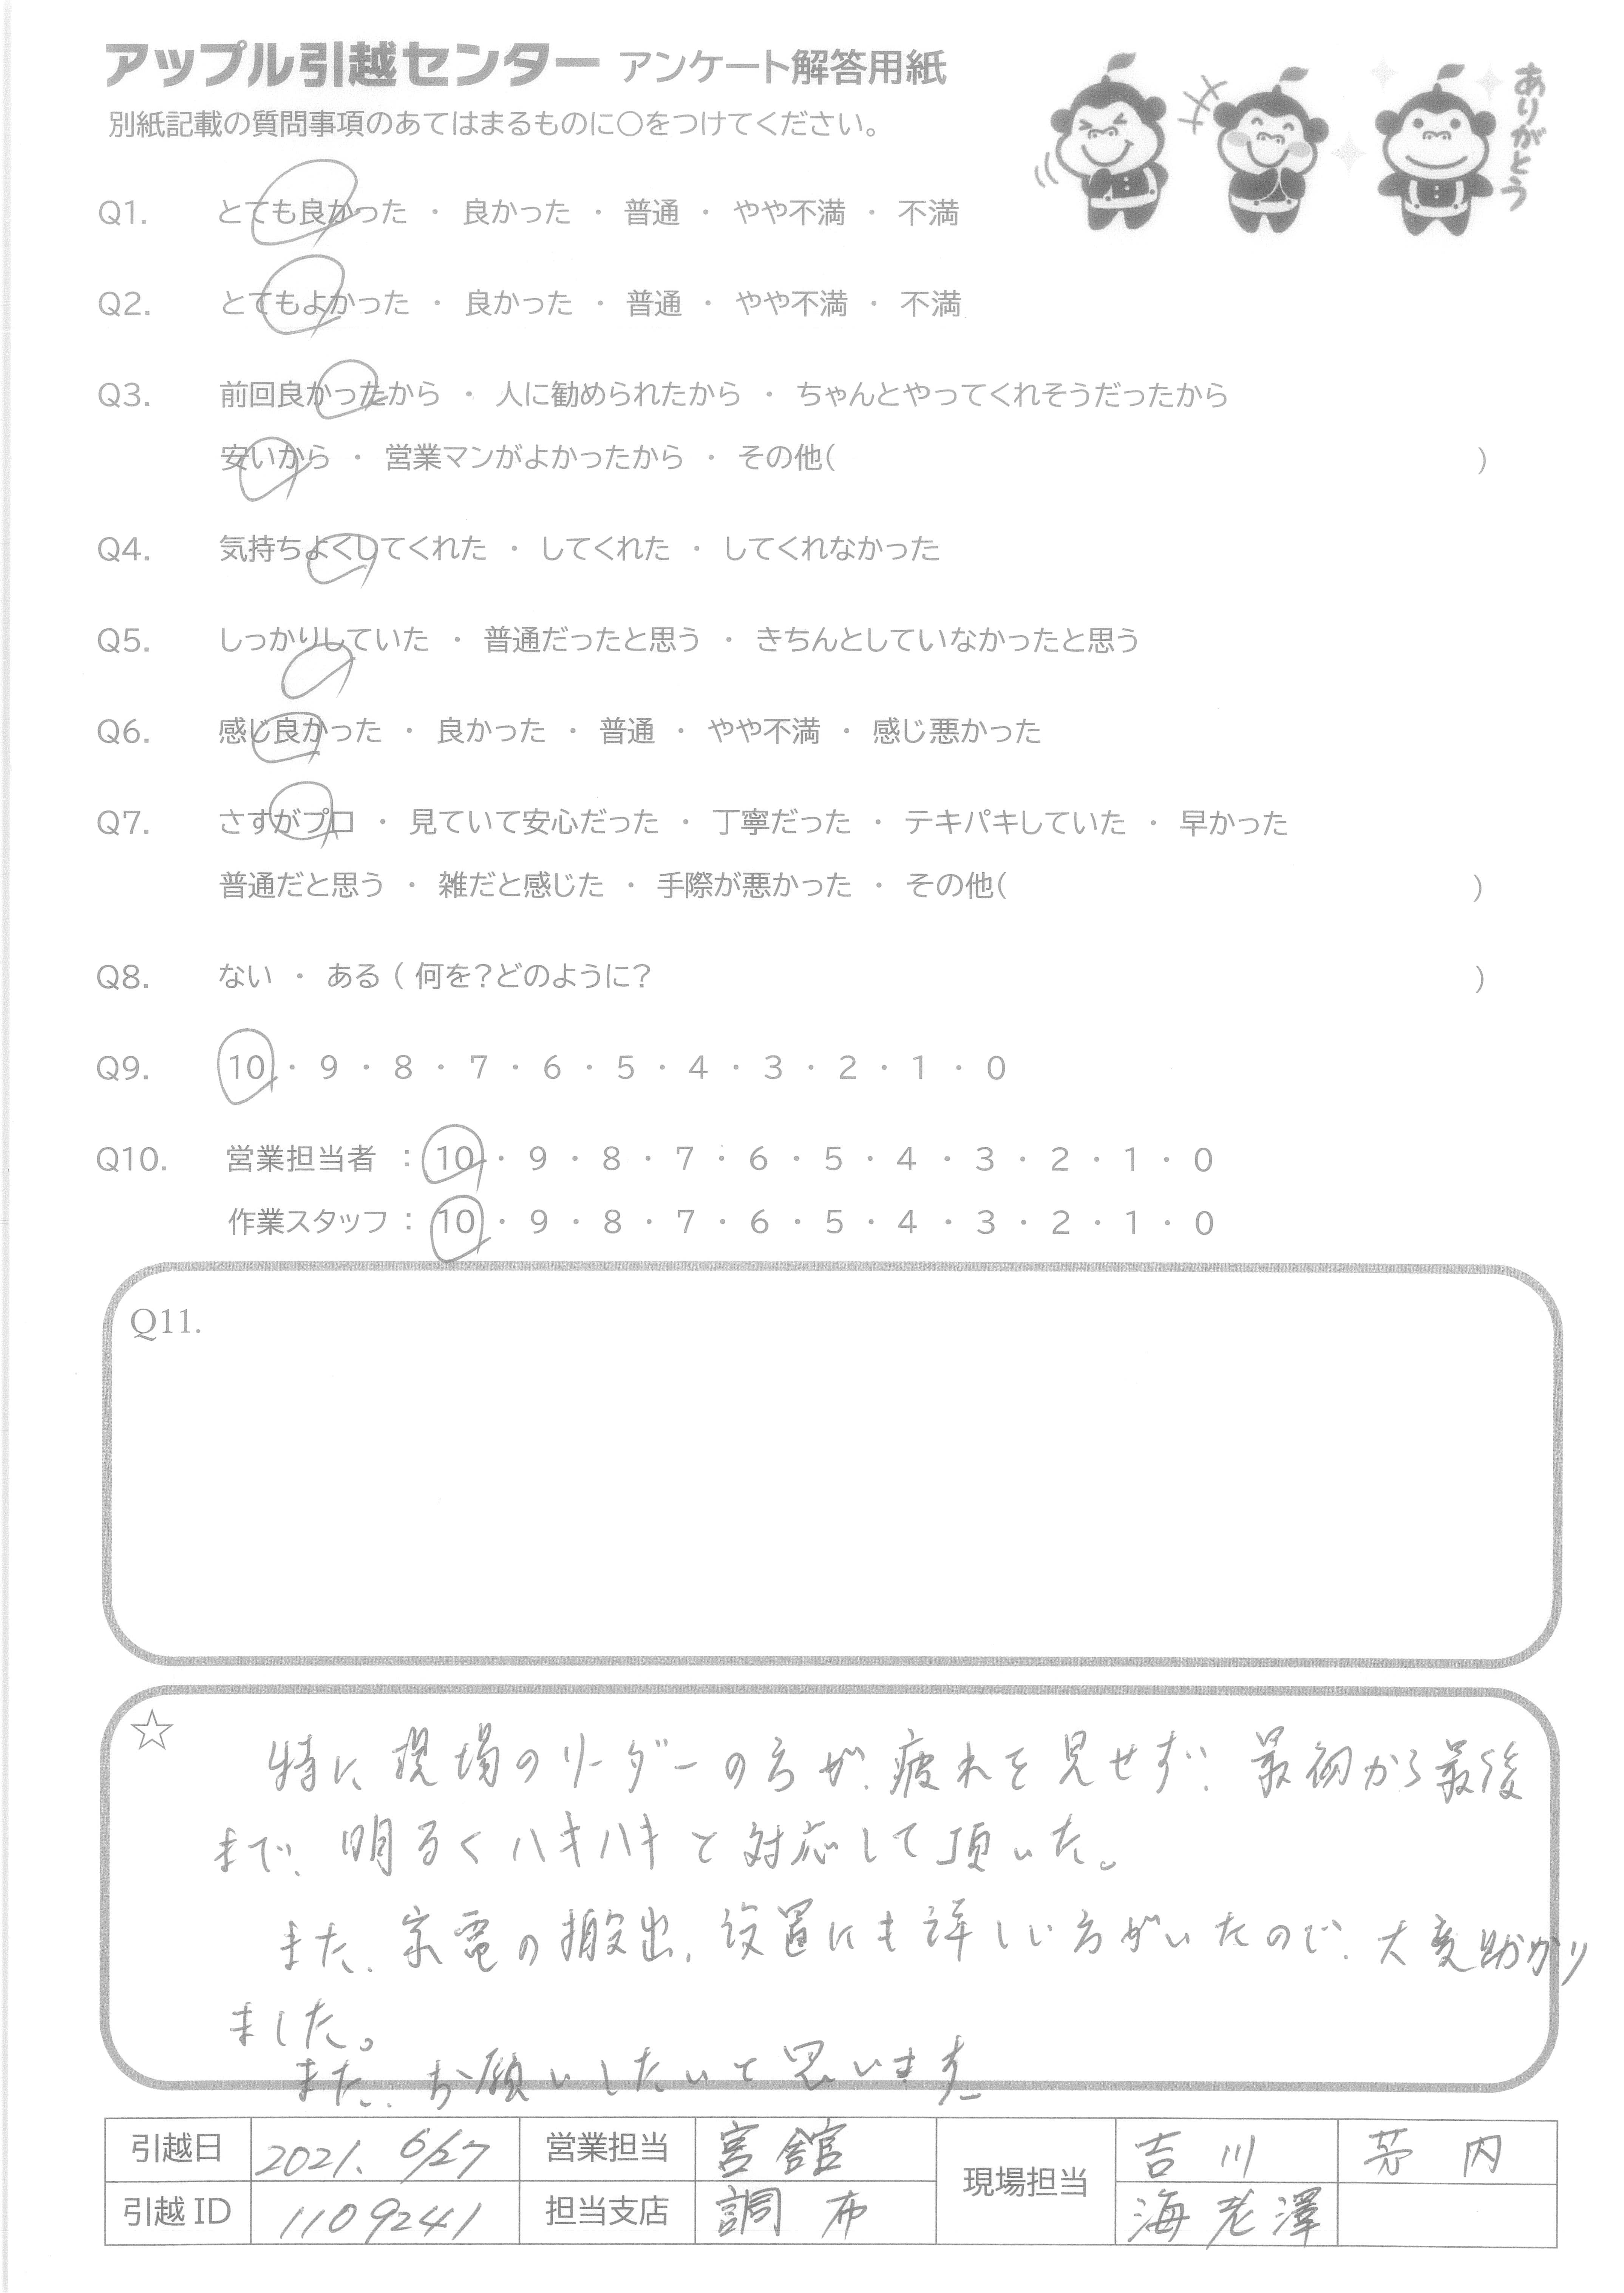 アップル引越センター アンケート解答用紙
別紙記載の質問事項のあてはまるものに○をつけてください。
ありがとう
Q1. とても良かった ・ 良かった ・ 普通 ・ やや不満 ・ 不満
Q2. とてもよかった ・ 良かった ・ 普通 ・ やや不満 ・ 不満
Q3. 前回良かったから ・ 人に勧められたから ・ ちゃんとやってくれそうだったから
安いから ・ 営業マンがよかったから ・ その他( )
Q4. 気持ちよくしてくれた ・ してくれた ・ してくれなかった
Q5. しっかりしていた ・ 普通だったと思う ・ きちんとしていなかったと思う
Q6. 感じ良かった ・ 良かった ・ 普通 ・ やや不満 ・ 感じ悪かった
Q7. さすがプロ ・ 見ていて安心だった ・ 丁寧だった ・ テキパキしていた ・ 早かった
普通だと思う ・ 雑だと感じた ・ 手際が悪かった ・ その他( )
Q8. ない ・ ある ( 何を?どのように? )
Q9. 10 ・ 9 ・ 8 ・ 7 ・ 6 ・ 5 ・ 4 ・ 3 ・ 2 ・ 1 ・ 0
Q10. 営業担当者 : 10 ・ 9 ・ 8 ・ 7 ・ 6 ・ 5 ・ 4 ・ 3 ・ 2 ・ 1 ・ 0
作業スタッフ : 10 ・ 9 ・ 8 ・ 7 ・ 6 ・ 5 ・ 4 ・ 3 ・ 2 ・ 1 ・ 0
Q11.
☆ 特に現場のリーダーの方が、疲れを見せず、最初から最後
まで、明るくハキハキと対応して頂いた。
また、家電の搬出、設置にも詳しい方がいたので、大変助かり
ました。
また、お願いしたいと思います
引越日 2021. 6/27 営業担当 宮舘 現場担当 吉川 内
引越ID 1109241 担当支店 調布 海老澤